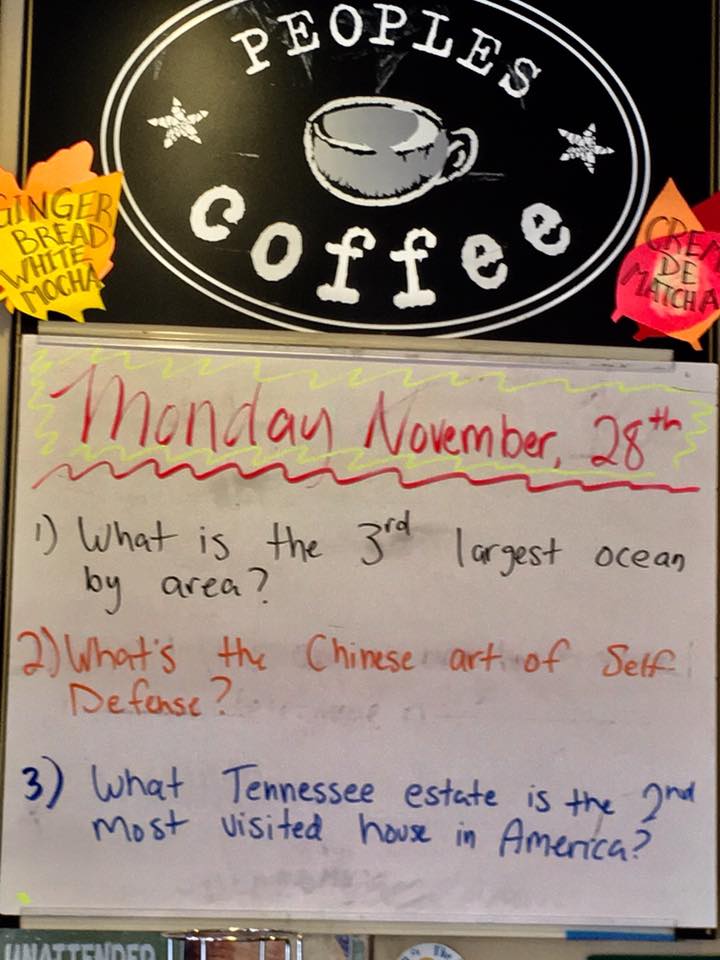 PEOPLES
coffee
GINGER
BREAD
WHITE
MOCHA
CREM
DE
MATCHA
Monday November, 28th
1) What is the 3rd largest ocean
by area?
2) What's the Chinese art of Self
Defense?
3) What Tennessee estate is the 2nd
most visited house in America?
UNATTENDED